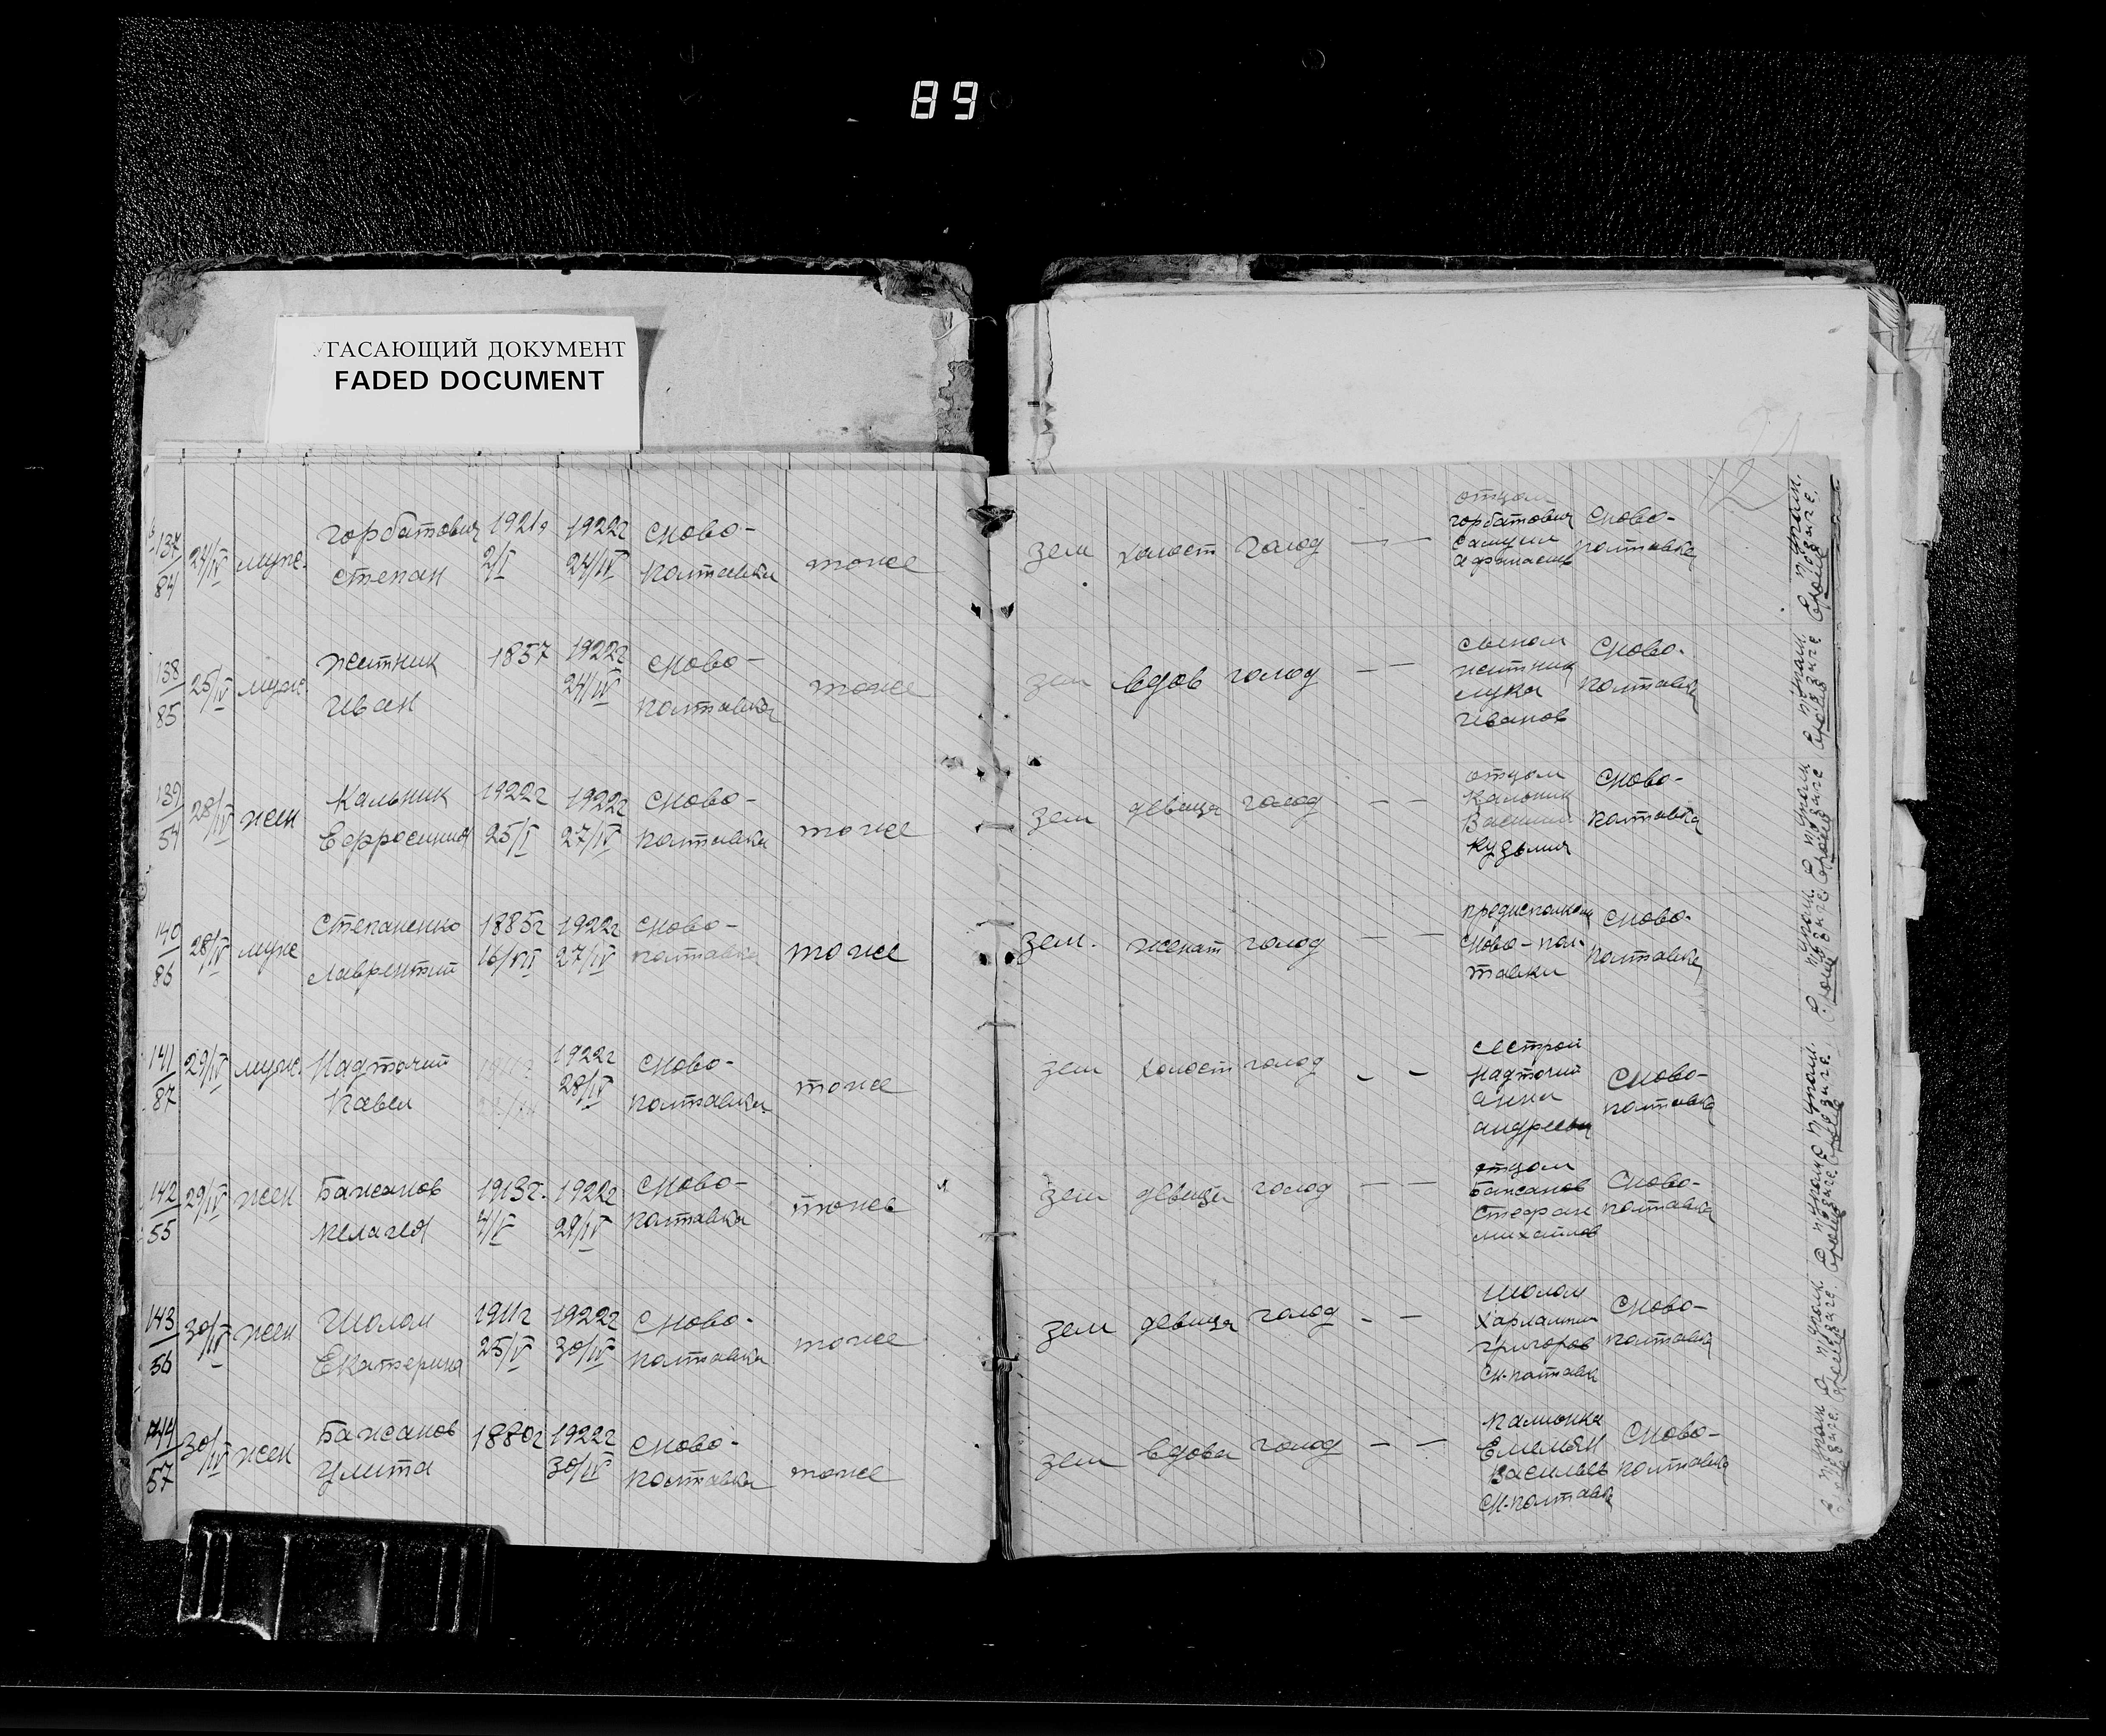 89
УГАСАЮЩИЙ ДОКУМЕНТ
FADED DOCUMENT
137/84 24/IV муж. Горбатович Степан 1921г 2/I 1922г 24/IV с Ново-Полтавка тоже
зем холост голод — — отцом Горбатович Самуил Афанасьев с Ново-Полтавка
138/85 25/IV муж. Житник Иван 1857 1922г 24/IV с Ново-Полтавка тоже
зем вдов голод — — сыном Житник Лука Иванов с Ново-Полтавка
139/54 28/IV жен Кальник Ефросиния 1922г 25/I 1922г 27/IV с Ново-Полтавка тоже
зем девица голод — — отцом Кальник Василий Кузьмич с Ново-Полтавка
140/86 28/IV муж Степаненко Лаврентий 1885г 16/VIII 1922г 27/IV с Ново-Полтавка тоже
зем. женат голод — — предисполкома с Ново-Полтавки с Ново-Полтавка
141/87 29/IV муж. Надточий Павел 1922г 28/IV с Ново-Полтавка тоже
зем холост голод — — сестрой Надточий Анна Андреевн с Ново-Полтавка
142/55 29/IV жен Бажанов Пелагея 1913г. 4/V 1922г 29/IV с Ново-Полтавка тоже
зем девица голод — — отцом Бажанов Стефан Михайлов с Ново-Полтавка
143/56 30/IV жен Шолом Екатерина 1911г 25/V 1922г 30/IV с Ново-Полтавка тоже
зем девица голод — — Шолом Харлампий Григоров с Н-Полтавк с Ново-Полтавка
144/57 30/IV жен Бажанов Улита 1880г 1922г 30/IV с Ново-Полтавка тоже
зем вдова голод — — Емельян Васильев с Н-Полтавк с Ново-Полтавка